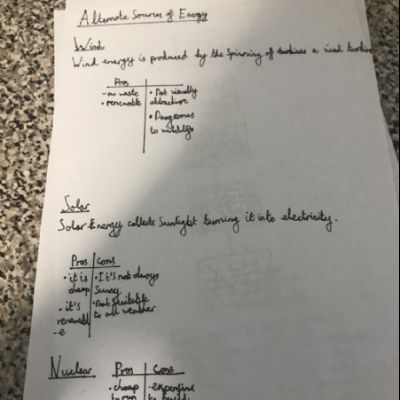 Alternate Sources of Energy
Wind
Wind energy is produced by the spinning of a wind turbine
Pros
- no waste • Not visually
• renewable attractive
• Dangerous
to wildlife
Solar
Solar Energy collects Sunlight turning it into electricity.
Pros Cons
• it is • It's not always
cheap Sunny
• it's • Not Suitable
renewabl to all weather
- e
Nuclear Pros Cons
• cheap • expensive
to run to build